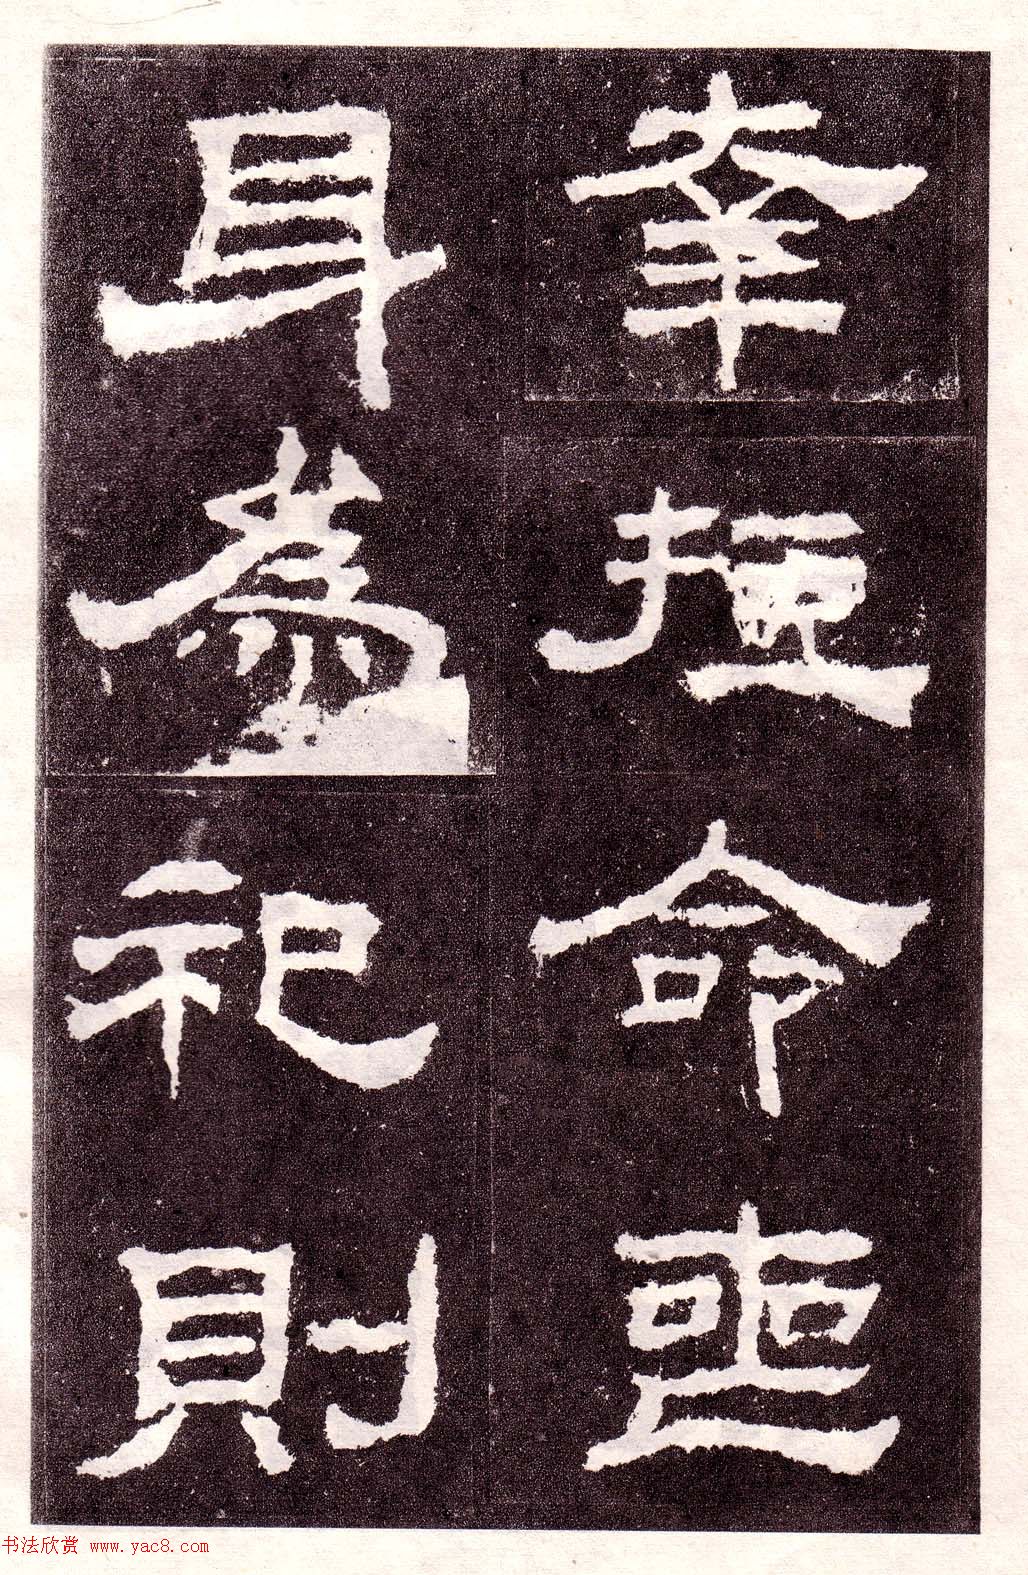 幸短命喪
身為祀則
书法欣赏 www.yac8.com